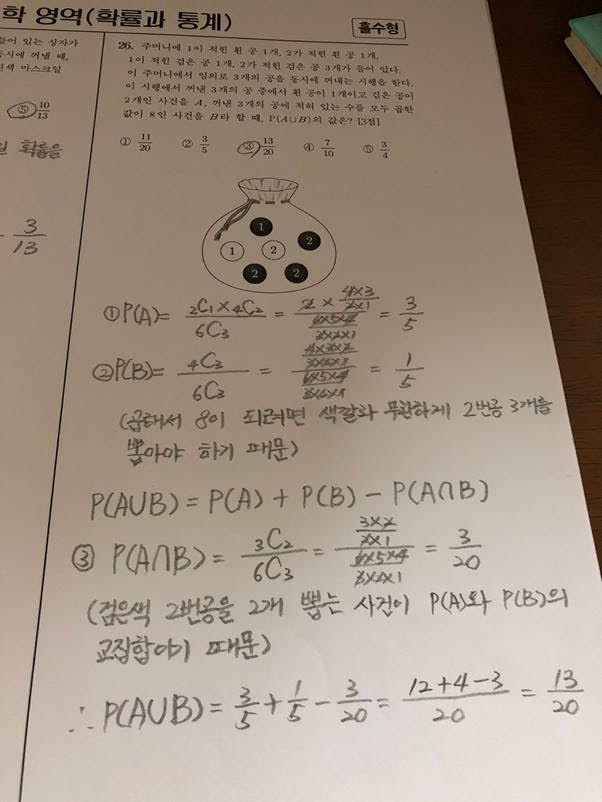 학 영역(확률과 통계)
홀수형
들어 있는 상자가
동시에 꺼낼 때,
색 마스크일
⑤ 10/13
확률은
3/13
26. 주머니에 1이 적힌 흰 공 1개, 2가 적힌 흰 공 1개,
1이 적힌 검은 공 1개, 2가 적힌 검은 공 3개가 들어 있다.
이 주머니에서 임의로 3개의 공을 동시에 꺼내는 시행을 한다.
이 시행에서 꺼낸 3개의 공 중에서 흰 공이 1개이고 검은 공이
2개인 사건을 A, 꺼낸 3개의 공에 적혀 있는 수를 모두 곱한
값이 8인 사건을 B라 할 때, P(A∪B)의 값은? [3점]
① 11/20 ② 3/5 ③ 13/20 ④ 7/10 ⑤ 3/4
1
1 2 2
2 2
①P(A)= 2C1×4C2 / 6C3 = 2 × 4×3/2×1 / 6×5×4/3×2×1 = 3/5
②P(B)= 4C3 / 6C3 = 4×3×2/3×2×1 / 6×5×4/3×2×1 = 1/5
(곱해서 8이 되려면 색깔과 무관하게 2번공 3개를
뽑아야 하기 때문)
P(A∪B) = P(A) + P(B) - P(A∩B)
③ P(A∩B) = 3C2 / 6C3 = 3×2/2×1 / 6×5×4/3×2×1 = 3/20
(검은색 2번공을 2개 뽑는 사건이 P(A)와 P(B)의
교집합이기 때문)
∴ P(A∪B) = 3/5 + 1/5 - 3/20 = 12+4-3/20 = 13/20